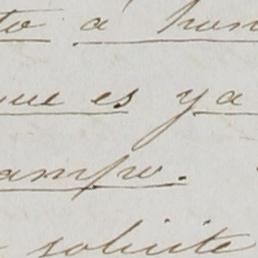 to á hon
que es ya
ampo.
solicite